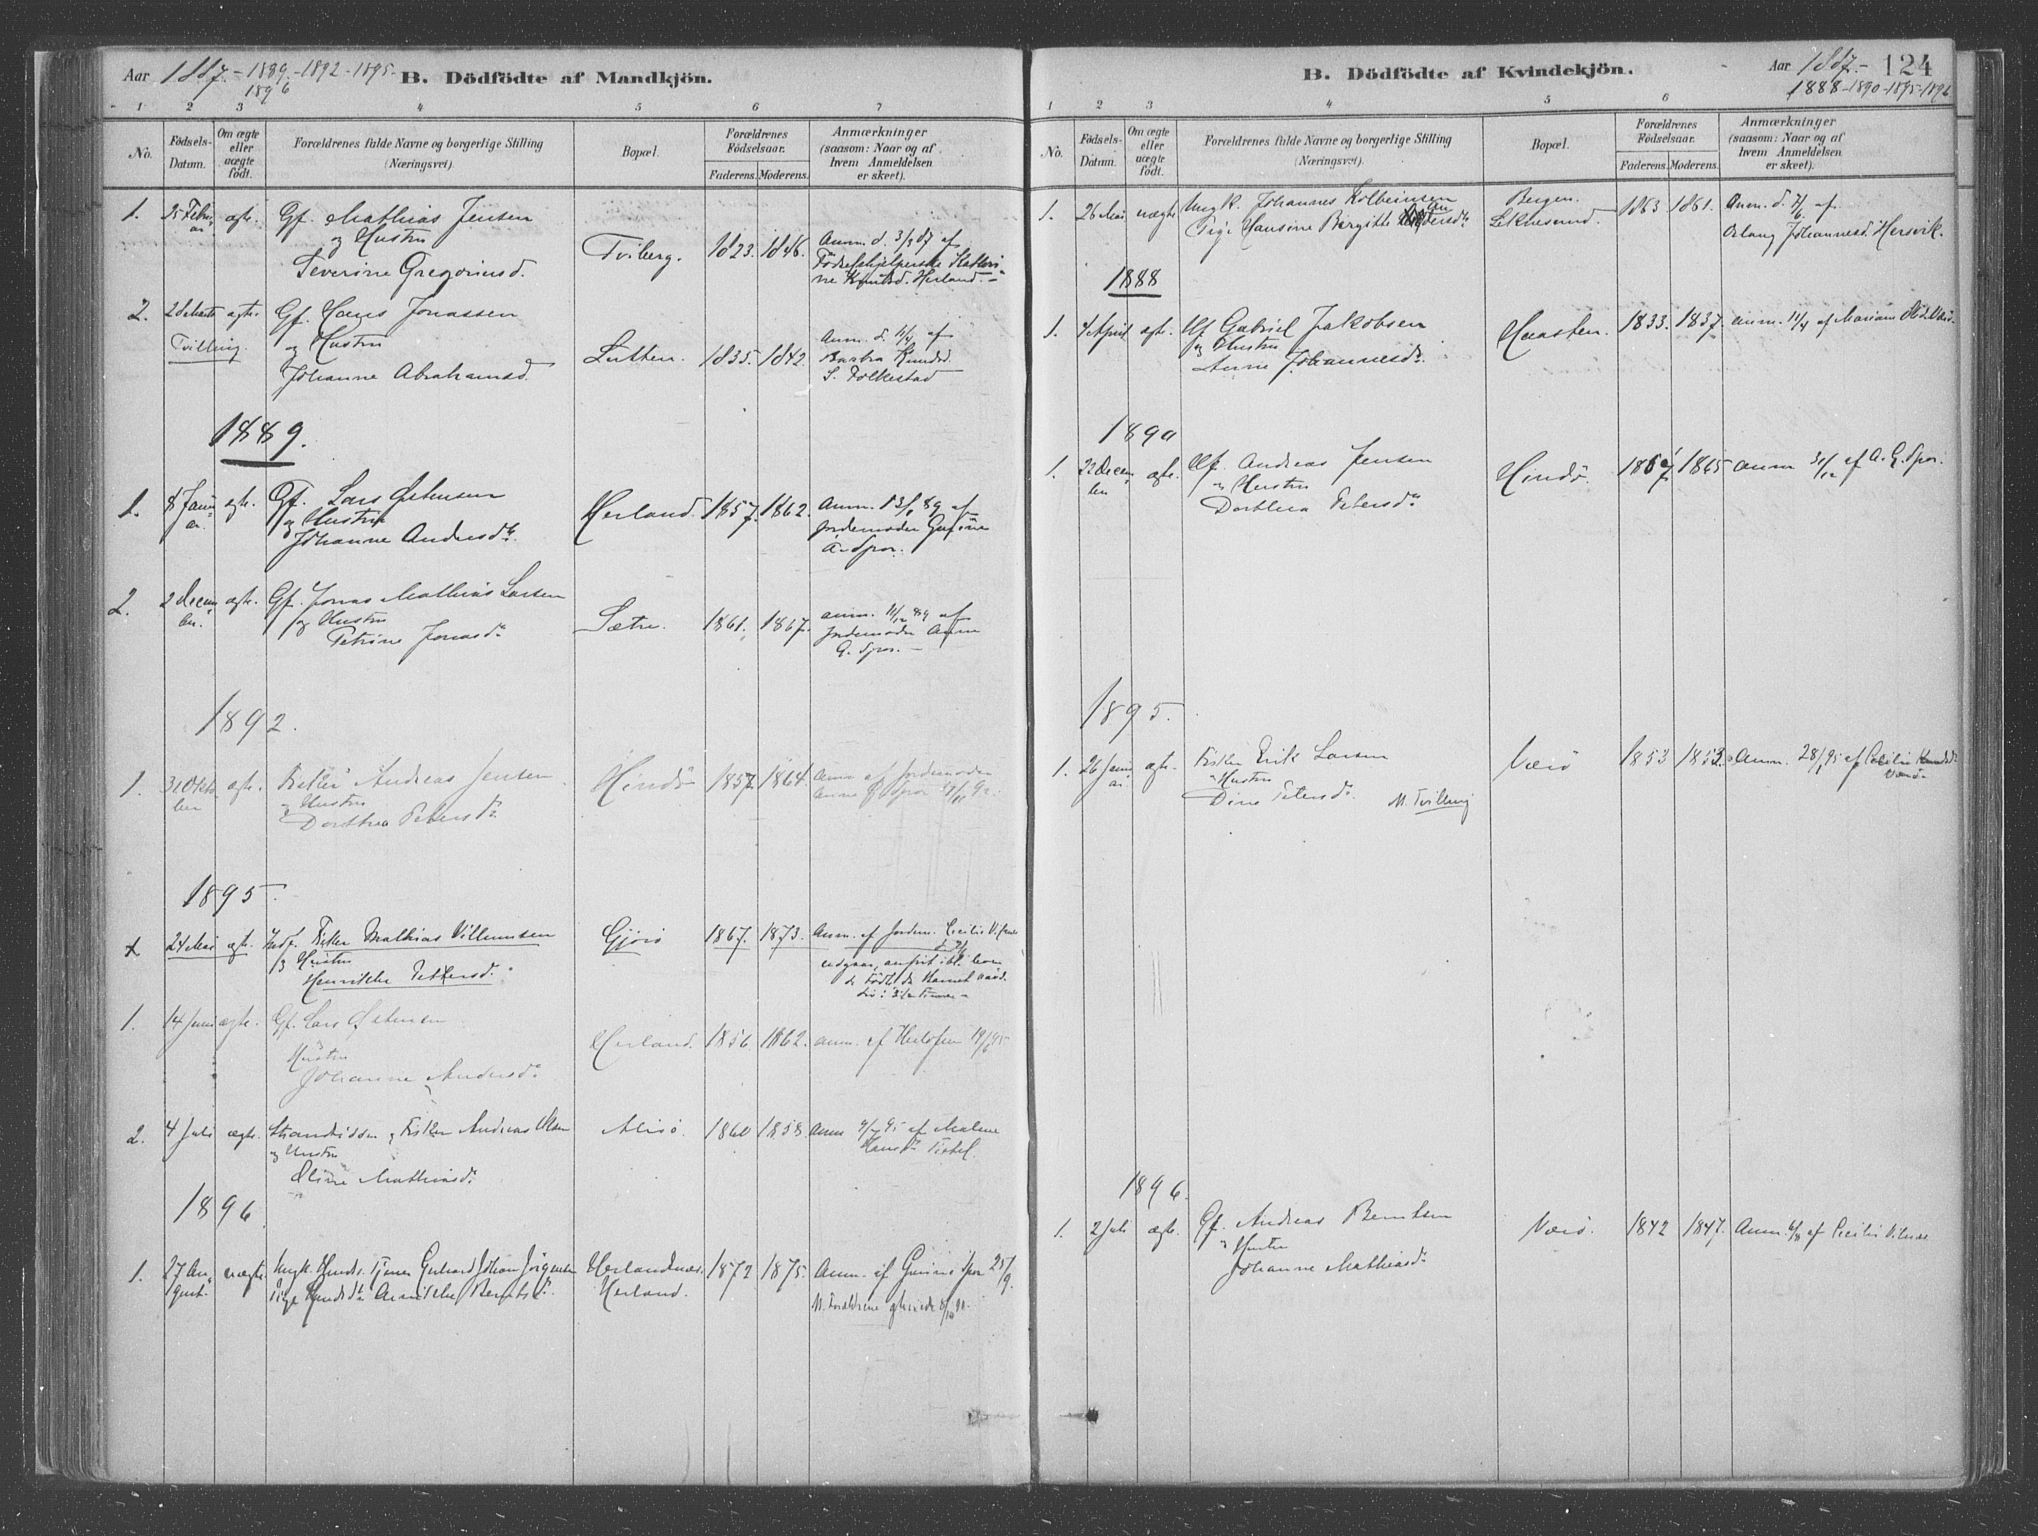 Aar 1887.-1889.-1892-1895.
1896
B. Dödfödte af Mandkjön.
1 2 3 4 5 6 7
No.
Födsels-
Datum.
Om ægte
eller
uægte
födt.
Forældrenes fulde Navne og borgerlige Stilling
(Næringsvei).
Bopæl.
Forældrenes
Födselsaar.
Faderens. Moderens.
Anmærkninger
(saasom: Naar og af
hvem Anmeldelsen
er skeet).
1. 25 Febru ægte. Gf. Mathias Jensen
ar
og Hustru
Severine Gregoriusd.
Tviberg. 1823. 1846.
Anm. d. 3/3 87 af
Födselshjelperske Kathri-
ne Knutsd. Herland.-
2. 28 Marts ægte. Gf. Hans Jonassen
Tvilling.
og Hustru
Johanne Abrahamsd.
Lutten. 1835. 1842.
Anm. d. 11/4 af
Barbra Knudsd.
S. Folkestad
1889.
1. 8 Janu ægte. Gf. Lars Østensen
ar.
og Hustru
Johanne Andersdr.
Herland. 1857. 1862.
Anm. 13/1 89 af
Jordemoder Gurine
A. Spor.
2. 2 Decem ægte. Gf. Jonas Mathias Larsen
ber.
og Hustru
Petrine Jonasdr
Sætre. 1861. 1867.
anm. 11/12 89 af
Jordemoder Anne
G. Spor.-
1892.
1. 31 Okto ægte. Fisker Andreas Jensen
ber
og Hustru
Dorthea Petersdr
Hindö 1857. 1864.
Anm af Jordemoder
Anne G Spor 92.
1895.
x 24 Mai ægte. Fisker Mathias Villumsen
og Hustru
Henrikke Pettersd.
Gjörö 1867. 1873.
Anm. af Jordem. Cecilie
udgaar, anfört bl. leven
de Födte da Barnet
1. 14 Juni ægte. Gf. Lars Østensen
Hustru
Johanne Andersdr
Herland. 1856. 1862. anm. af 19/6 95
2. 4 Juli ægte. Strandsidder og Fisker Andreas Olsen
og Hustru
Oline Mathiasdr
Alisö. 1860 1858
Anm 9/7 95 af Malene
Hansdr
1896
1. 27 Au uægte Ungk. Tjener Gerhard Johan Jörgensen
gust.
Pige Annikke Berntsdr.
Herlandnæs.
Herland.
1872 1875.
Anm. af Gurine Spor 25/9.
B. Dödfödte af Kvindekjön.
Aar 1887.-
1888-1890-1895-1896
124
1 2 3 4 5 6
No.
Födsels-
Datum.
Om ægte
eller
uægte
födt.
Forældrenes fulde Navne og borgerlige Stilling
(Næringsvei).
Bopæl.
Forældrenes
Födselsaar.
Faderens. Moderens.
Anmærkninger
(saasom: Naar og af
hvem Anmeldelsen
er skeet).
1. 26 Mai uægte Ungk. Johannes Kolbeinsen
Pige Hansine Bergitte
Bergen.
Leknesund.
1863. 1861.
Anm. d. 7/6. af
Johannesd. Hersvik.
1888
1. 4 April ægte. Gf Gabriel Jakobsen
og Hustru
Anne Johannesdr.
Haasten. 1833. 1837. anm. 11/4 af Mariam
1890
1. 22 Decem ægte. Gf. Andreas Jensen
ber
og Hustru
Dorthea Petersdr
Hindö. 1857. 1865 anm 31/12 af A. G. Spor.
1895.
1. 26 Janu ægte. Fisker Erik Larsen
ar
Hustru
Dina Petersdr. N. Tvilling
Værö 1853 1853. Anm. 28/1 95 af Cecilie
1896.
1. 2 Juli ægte. Gf. Andreas Berntsen
Hustru
Johanne Mathiasdr
Værö. 1842 1847. Anm. 6/8 af Cecilie